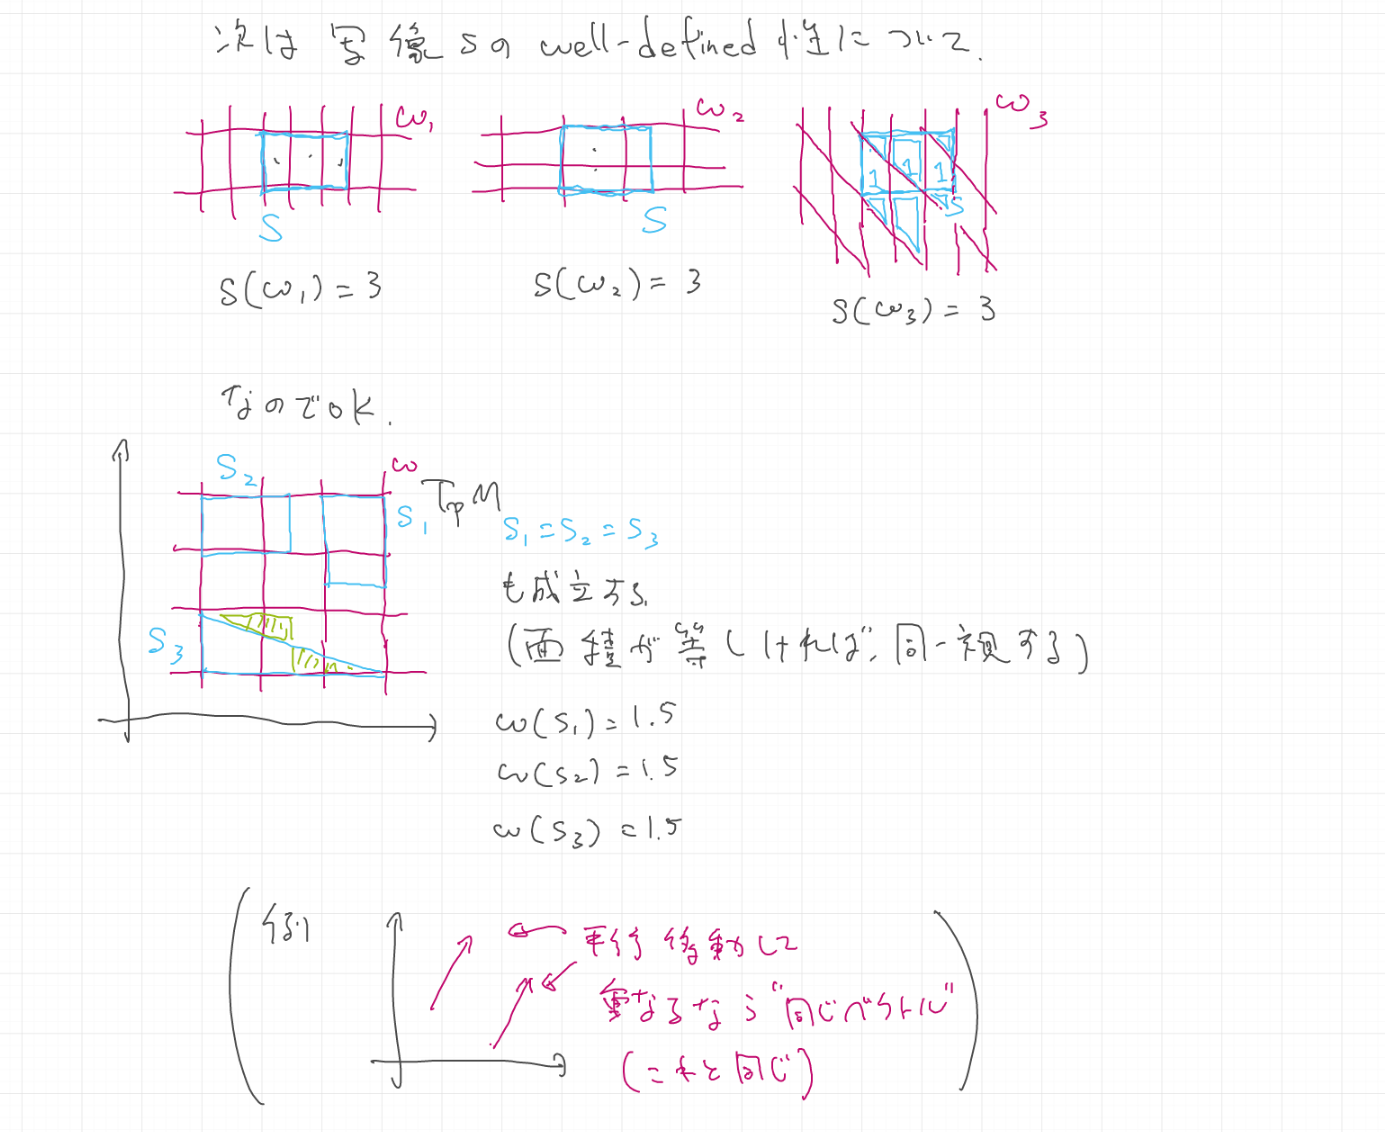 次は写像Sのwell-defined性について.
ω₁
ω₂
ω₃
S
S
1 1 1
S
S(ω₁) = 3
S(ω₂) = 3
S(ω₃) = 3
なのでok.
S₂
ω
TpM
S₁
S₁ = S₂ = S₃
も成立する.
S₃
(面積が等しければ、同一視する)
ω(S₁) = 1.5
ω(S₂) = 1.5
ω(S₃) = 1.5
例
平行移動して
重なるなら"同じベクトル"
(これと同じ)